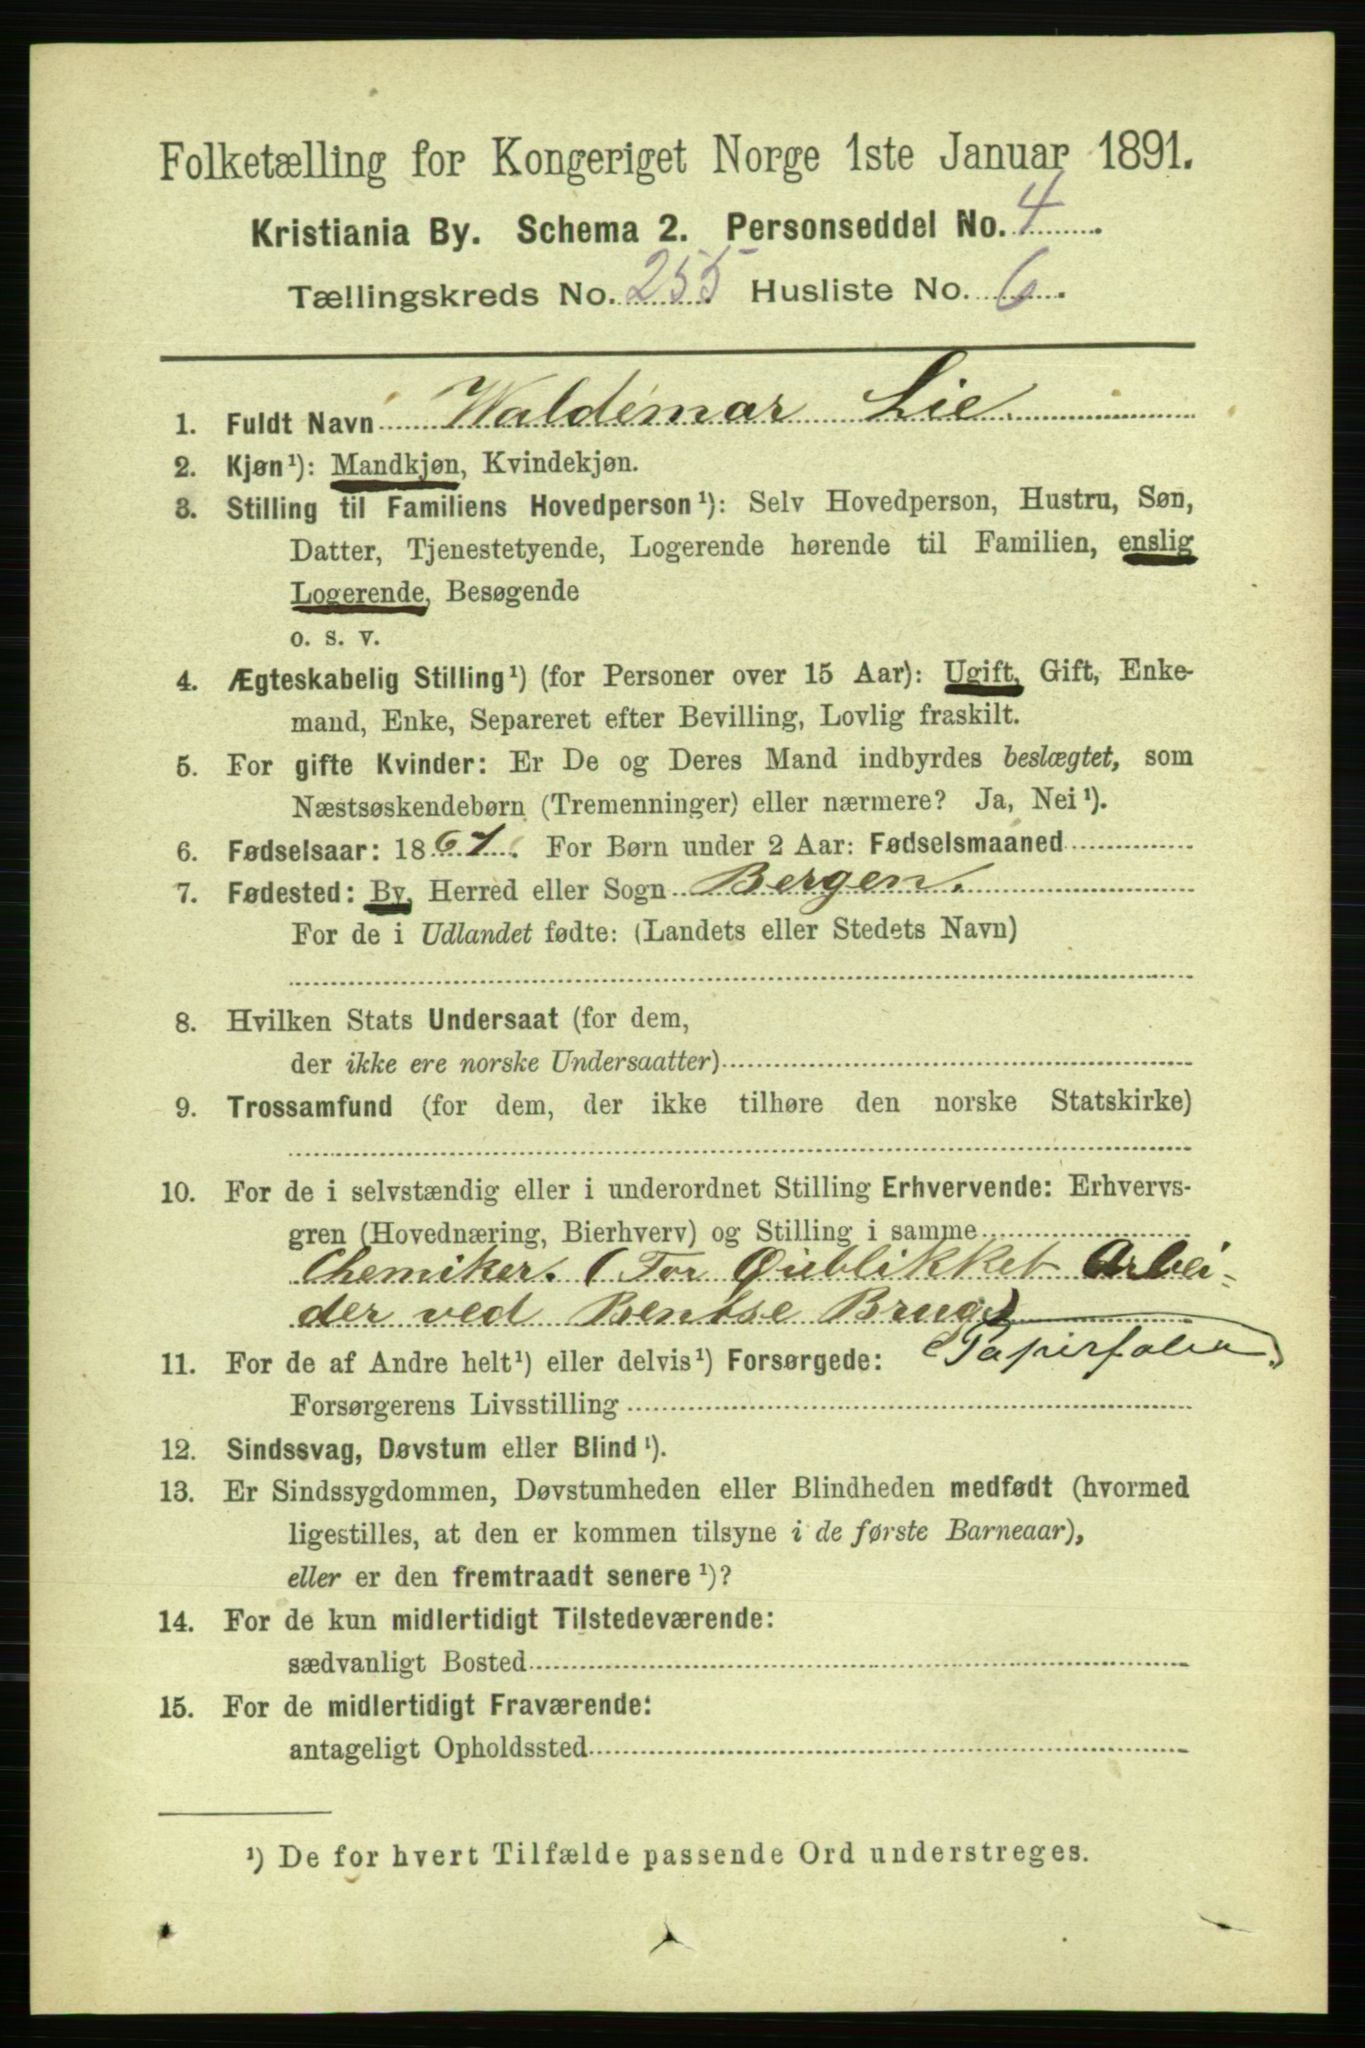 Folketælling for Kongeriget Norge 1ste Januar 1891.
Kristiania By. Schema 2. Personseddel No. 4
Tællingskreds No. 255 Husliste No. 6
1. Fuldt Navn Waldemar Lie
2. Kjøn¹): Mandkjøn, Kvindekjøn.
3. Stilling til Familiens Hovedperson¹): Selv Hovedperson, Hustru, Søn,
Datter, Tjenestetyende, Logerende hørende til Familien, enslig
Logerende, Besøgende
o. s. v.
4. Ægteskabelig Stilling¹) (for Personer over 15 Aar): Ugift, Gift, Enke-
mand, Enke, Separeret efter Bevilling, Lovlig fraskilt.
5. For gifte Kvinder: Er De og Deres Mand indbyrdes beslægtet, som
Næstsøskendebørn (Tremenninger) eller nærmere? Ja, Nei¹).
6. Fødselsaar: 1867. For Børn under 2 Aar: Fødselsmaaned
7. Fødested: By, Herred eller Sogn Bergen.
For de i Udlandet fødte: (Landets eller Stedets Navn)
8. Hvilken Stats Undersaat (for dem,
der ikke ere norske Undersaatter)
9. Trossamfund (for dem, der ikke tilhøre den norske Statskirke)
10. For de i selvstændig eller i underordnet Stilling Erhvervende: Erhvervs-
gren (Hovednæring, Bierhverv) og Stilling i samme
Chemiker. (For Øieblikket Arbei-
der ved Bentse Brug)
(Papirfabr.)
11. For de af Andre helt¹) eller delvis¹) Forsørgede:
Forsørgerens Livsstilling
12. Sindssvag, Døvstum eller Blind¹).
13. Er Sindssygdommen, Døvstumheden eller Blindheden medfødt (hvormed
ligestilles, at den er kommen tilsyne i de første Barneaar),
eller er den fremtraadt senere¹)?
14. For de kun midlertidigt Tilstedeværende:
sædvanligt Bosted
15. For de midlertidigt Fraværende:
antageligt Opholdssted
¹) De for hvert Tilfælde passende Ord understreges.